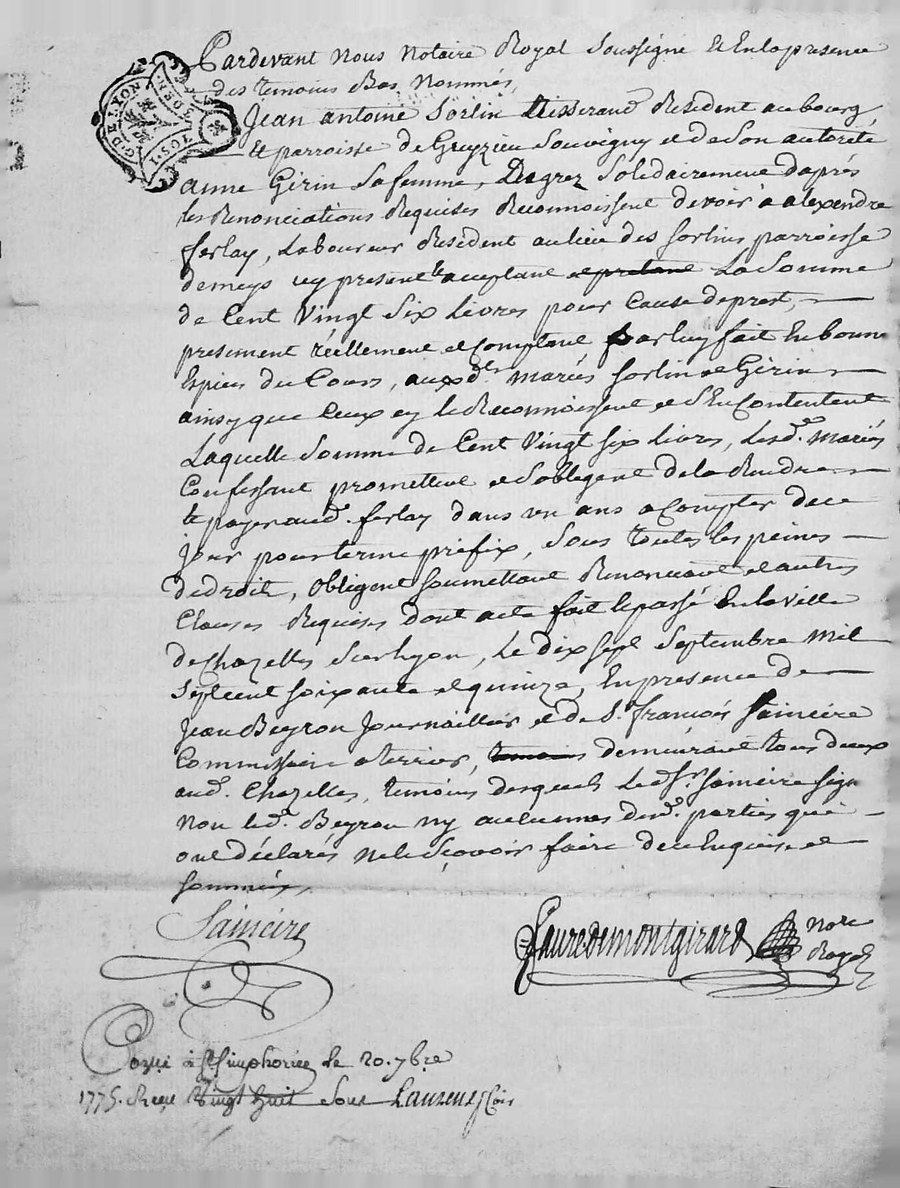 Pardevant Nous Notaire Royal Soussigné Et En la presence
des temoins Bas Nommés,
G. DE LYON
1. SOL
Jean antoine Sorlin Tisserand Resident au bourg
et parroisse de Greyzieu Souvigny et de Son autorité
anne Girin Sa femme, De grez Solidairement daprés
les Renonciations Requises Reconnoissent devoir à alexendre
ferlay, Laboureur Resident au lieu des Sorlins parroisse
demeys icy present et acceptant La Somme
de Cent Vingt Six Livres pour Cause de prest,
presement réellement et Comptant par luy fait En bonne
Espices du Cours, aux d.ts mariés Sorlin et Girin
ainsy que Ceux cy le Reconnoissent et S'En Contentent
Laquelle Somme de Cent Vingt six Livres, Les d.t mariés
Confessent promettent et S'oblegent de la Rendre
et payer aud. ferlay dans un ans a Compter de ce
jour pour terme prefix, Sous toutes les peines
De droit, obligent Soumettant Renoncant et autres
Clauses Requises dont acte fait et passé En la Ville
de Chazelles Sur Lyon, Le dix Sept Septembre Mil
Sept Cent soixante et quinze, En presence de
Jean Beyron Journaillier et de S.r François Saineire
Commissaire a terrier, temoins demeurant tous deux
aud. Chazelles, temoins desquels Le d. Sr. Saineire Sign
Non le d.t Beyron ny aucunnes des d.t parties qui
ont déclarés ne le Sçavoir faire de ce Enquis et
Sommés,
Saineire
Fauredemontgirard Not.re
Royal
Con.lé à St Simphorien le 20. 7bre
1775. Reçu Vingt huit Sous Laurens Cois